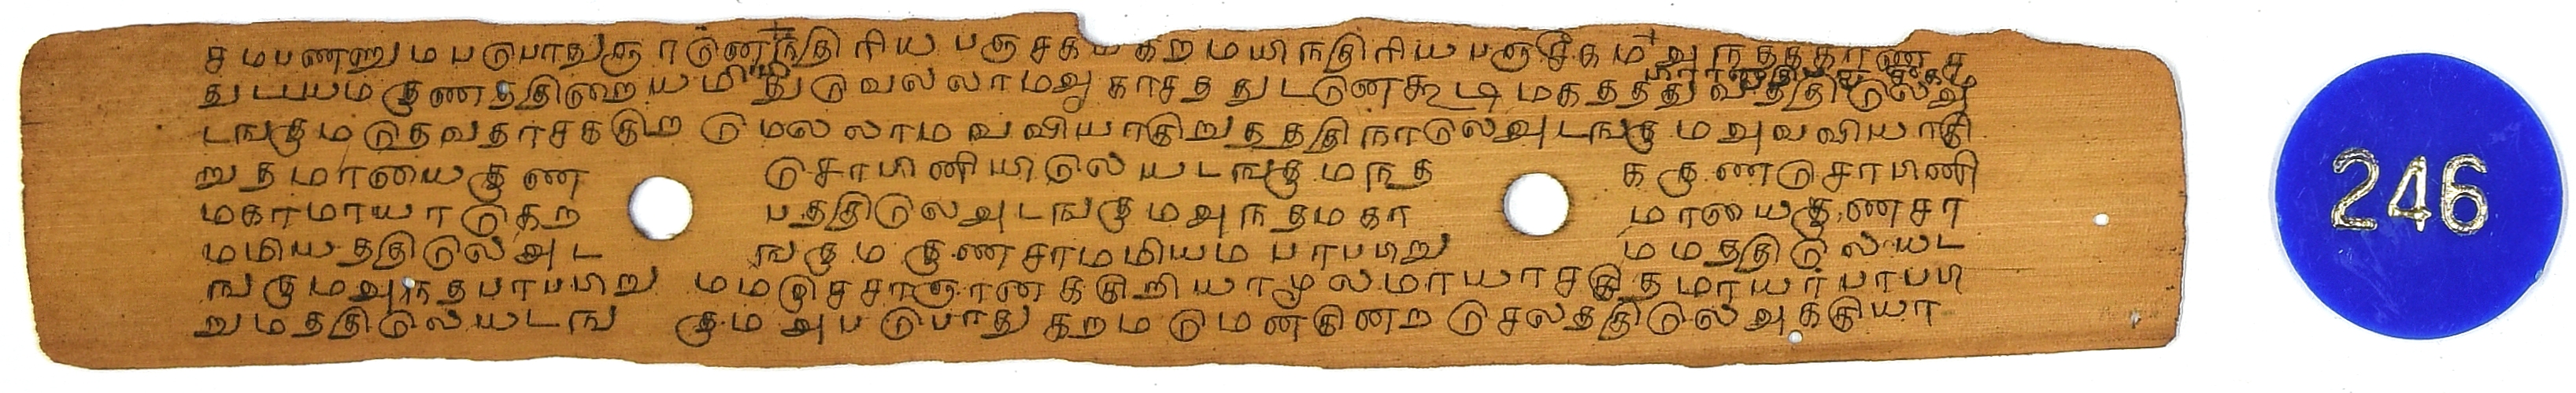 சமபணணும படுபாதுஞாடுனநதிரிய பஞசக கறமயிநதிரியபஞசீகம அநதககாணச
துடடயம குணத்திறையமி துடுவலலாமஅகாசதத்துடடுனகூடிமகதததுவததிடுலஅ
டஙகுமடுதவதரசககிற டுமலலாமவவியாகிறுதததிநாடுலஅடஙகுமஅவவியாகி
றுதமாயைகுண டுசாபிணியிடுலயடஙகுமநத ககுணடுசாபிணி
மகாமாயாடுகற பததிடுலஅடஙகுமஅநதமகா மாயைகுணசா
மமியததிடுலஅட ஙகுமகுணசாமமியம பாபபிறு மமததிடுலயட
ஙகுமஅநதபாபபிறு மமடுசசாஞானககிறியாமுலமாயாசகிதமாயாபாபபி
றுமததிடுலயடங குமஅபடுபாதுகறமடுமனகினறடுசலததிடுலஅககியா
246